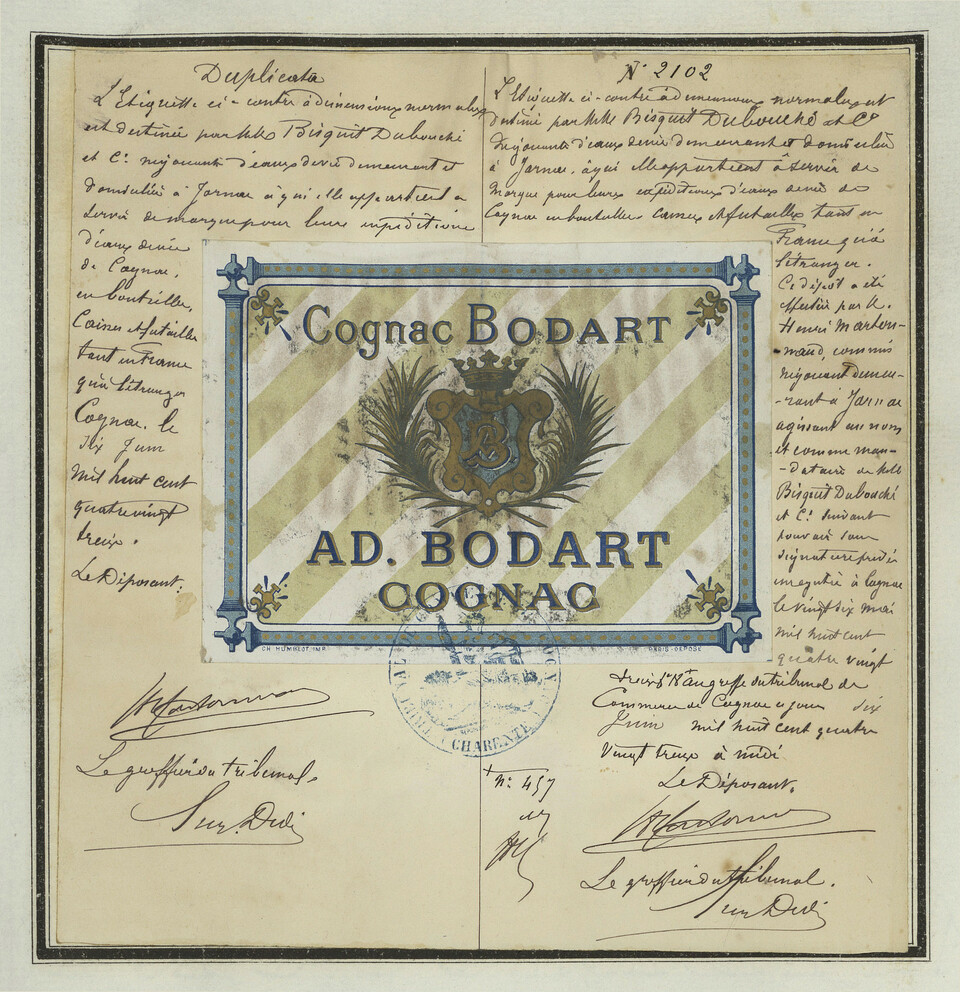 Duplicata
L'Etiquette ci-contre à dimensions normales
est destinée par MM Bisquit Dubouché
et Cie négociants d'eaux de vie demeurant et
domiciliés à Jarnac à qui elle appartient à
servir de marque pour leurs expéditions
d'eaux de vie
de Cognac,
en bouteilles,
Caisses et futailles
tant en France
qu'à l'étranger
Cognac, le
six Juin
mil huit cent
quatre vingt
treize.
Le Déposant.
Le greffier du tribunal.
N° 2102
L'Etiquette ci-contre à dimensions normales est
destiné par MM Bisquit Dubouché et Cie
négociants d'eaux de vie demeurant et domiciliés
à Jarnac, à qui elle appartient à servir de
marque pour leurs expéditions d'eaux de vie de
Cognac en bouteilles caisses et futailles tant en
France qu'à
l'étranger.
Ce dépôt a été
effectué par M.
Henri
commis
négociant demeu-
-rant à Jarnac
agissant au nom
et comme man-
-dataire de MM
Bisquit Dubouché
et Cie suivant
pouvoir sous
signature privée
enregistré à Cognac
le vingt six mai
mil huit cent
quatre vingt
treize au greffe du tribunal de
Commerce de Cognac ce jour six
Juin mil huit cent quatre
vingt treize à midi
Le Déposant.
Le greffier du tribunal.
N° 457
Cognac BODART
AB
AD. BODART
COGNAC
CH. HUMBLOT, IMP.
PARIS - DÉPOSÉ
CHARENTE